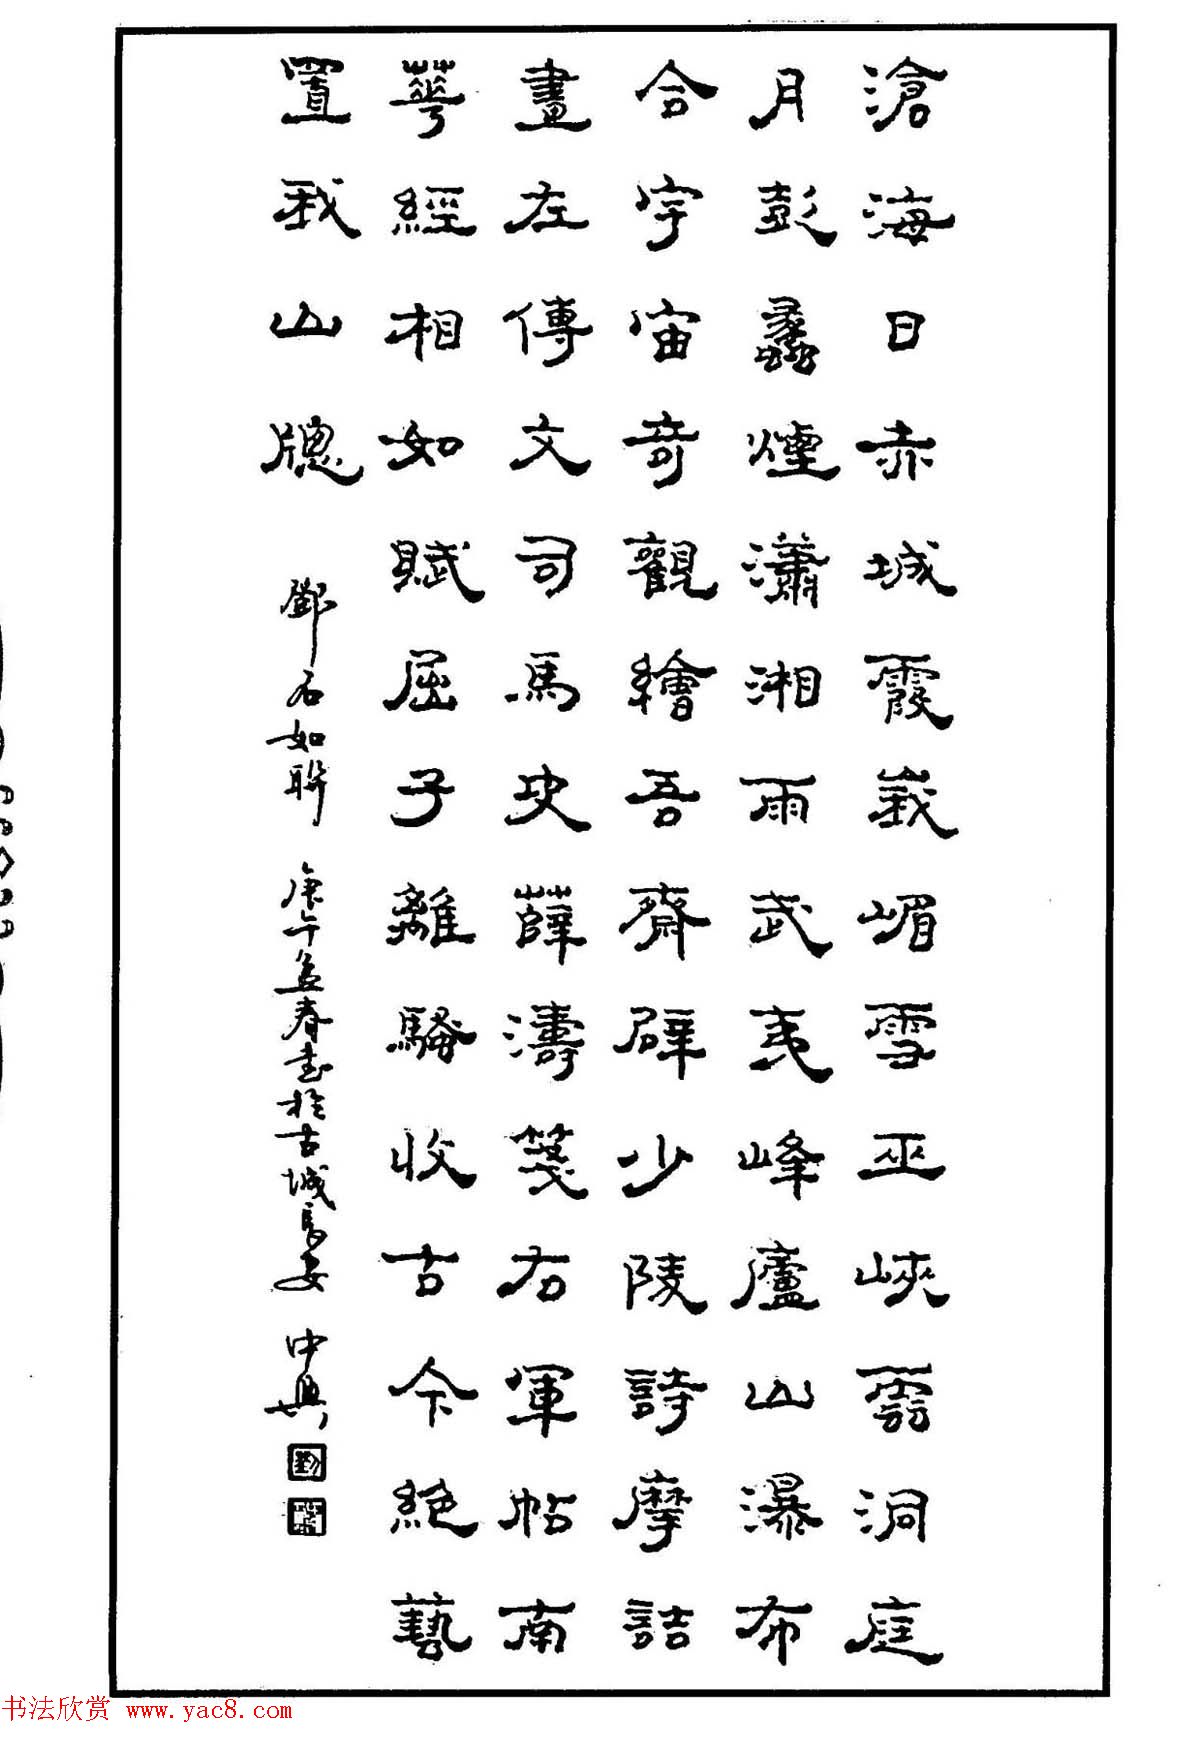 滄海日赤城霞峩嵋雪巫峽雲洞庭
月彭蠡煙瀟湘雨武夷峰廬山瀑布
合宇宙奇觀繪吾齋辟少陵詩摩詰
畫左傳文司馬史薛濤箋右軍帖南
華經相如賦屈子離騷收古今絕藝
置我山牕 鄧石如聯 庚午孟春書於古城長安 中興
书法欣赏 www.yac8.com